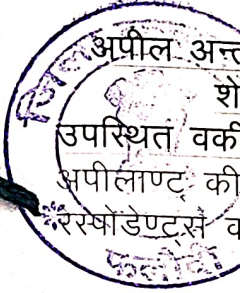 अपील अन्त
शे
उपस्थित वकी
अपीलाण्ट् की
रेस्पोंडेण्ट्स व